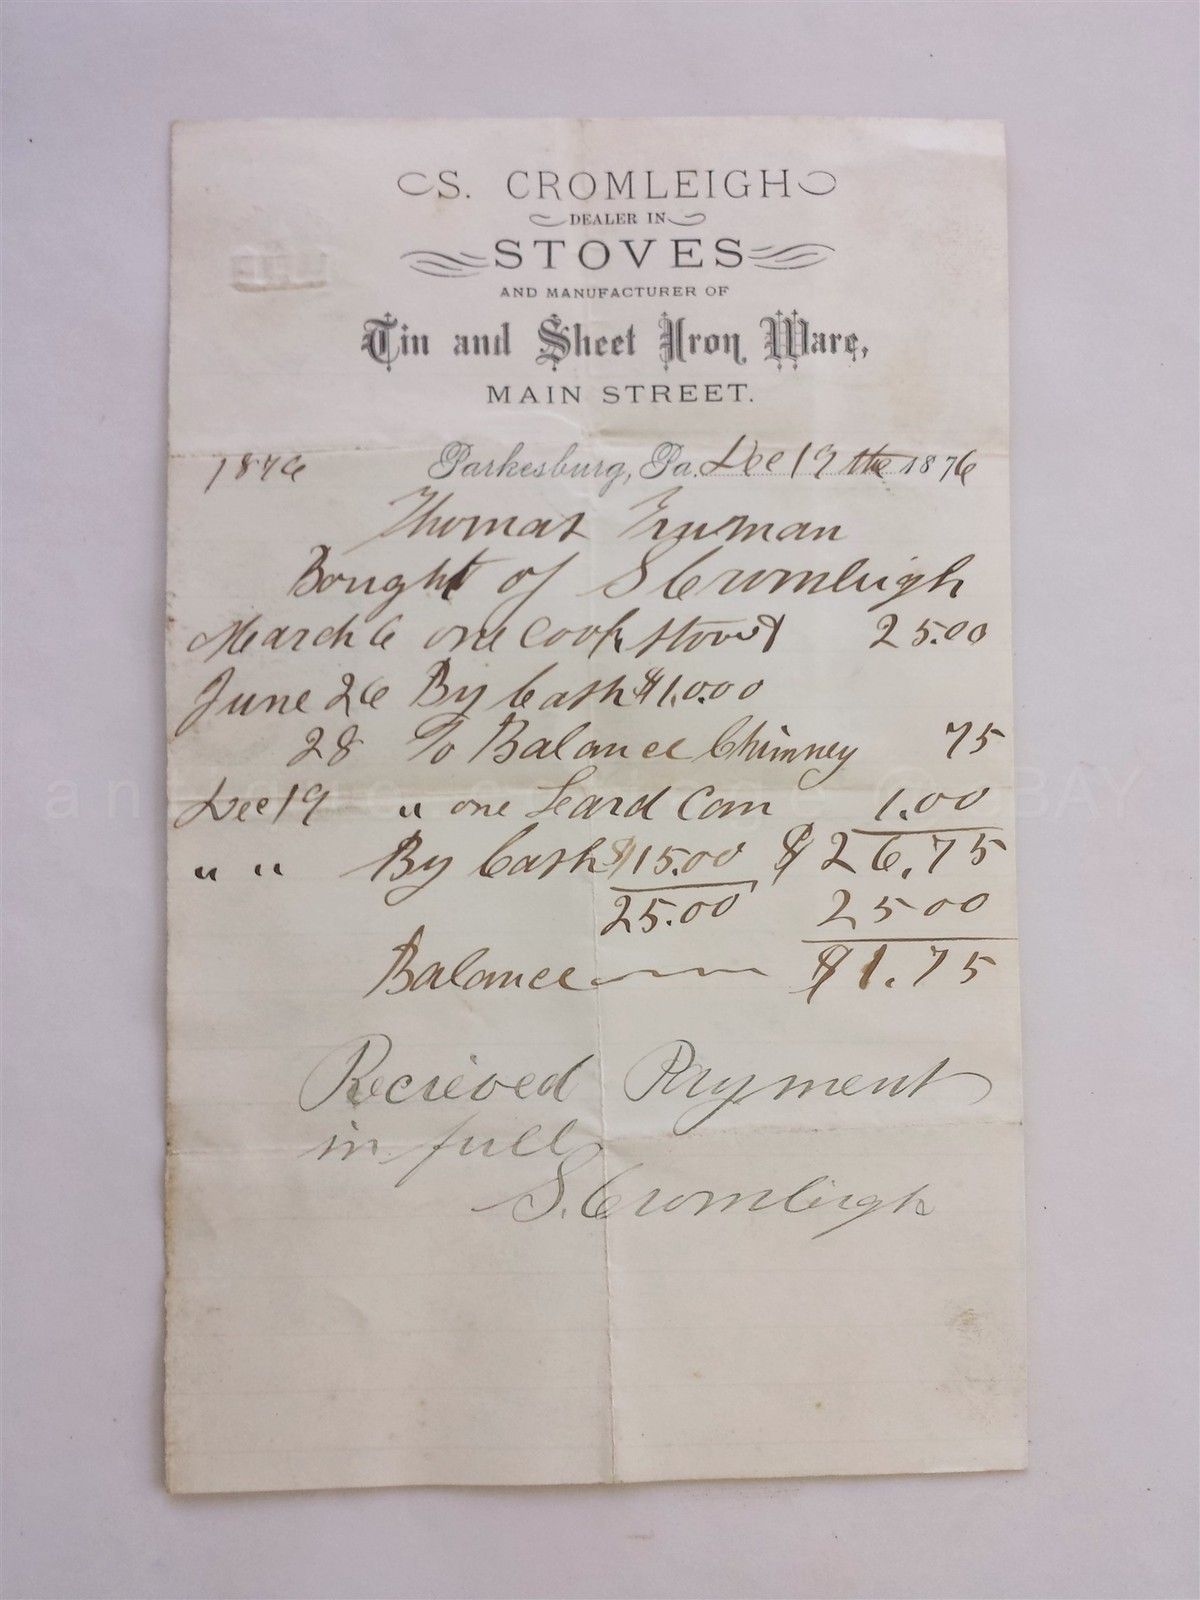 S. CROMLEIGH
DEALER IN
STOVES
AND MANUFACTURER OF
Tin and Sheet Iron Ware,
MAIN STREET.
1876 Parkesburg, Pa. Dec 19 the 1876
Thomas Truman
Bought of S Cromleigh
March 6 one Cook stove 25.00
June 26 By Cash $10.00
28 To Balance Chimney 75
Dec 19 " one Leard Can 1.00
" " By Cash $15.00 $26.75
25.00 25 00
Balance $1.75
Recieved Payment
in full
S. Cromleigh